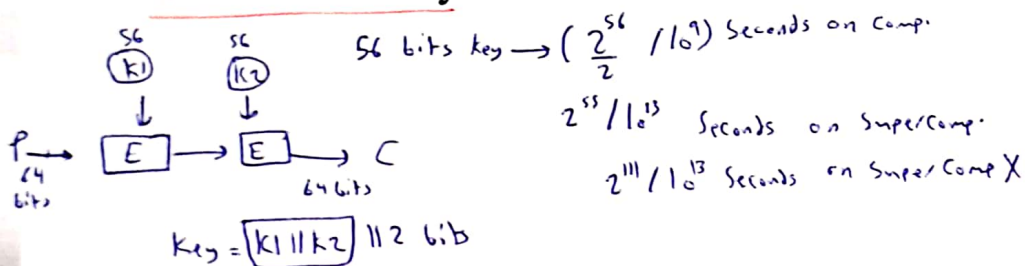 56 56
K1 K2
56 bits key → ( 2^56 / 2 / 10^9 ) Seconds on Comp.
2^55 / 10^13 Seconds on SuperComp.
2^111 / 10^13 Seconds on SuperComp X
P → E → E → C
64 bits
64 bits
Key = K1 || K2 112 bits